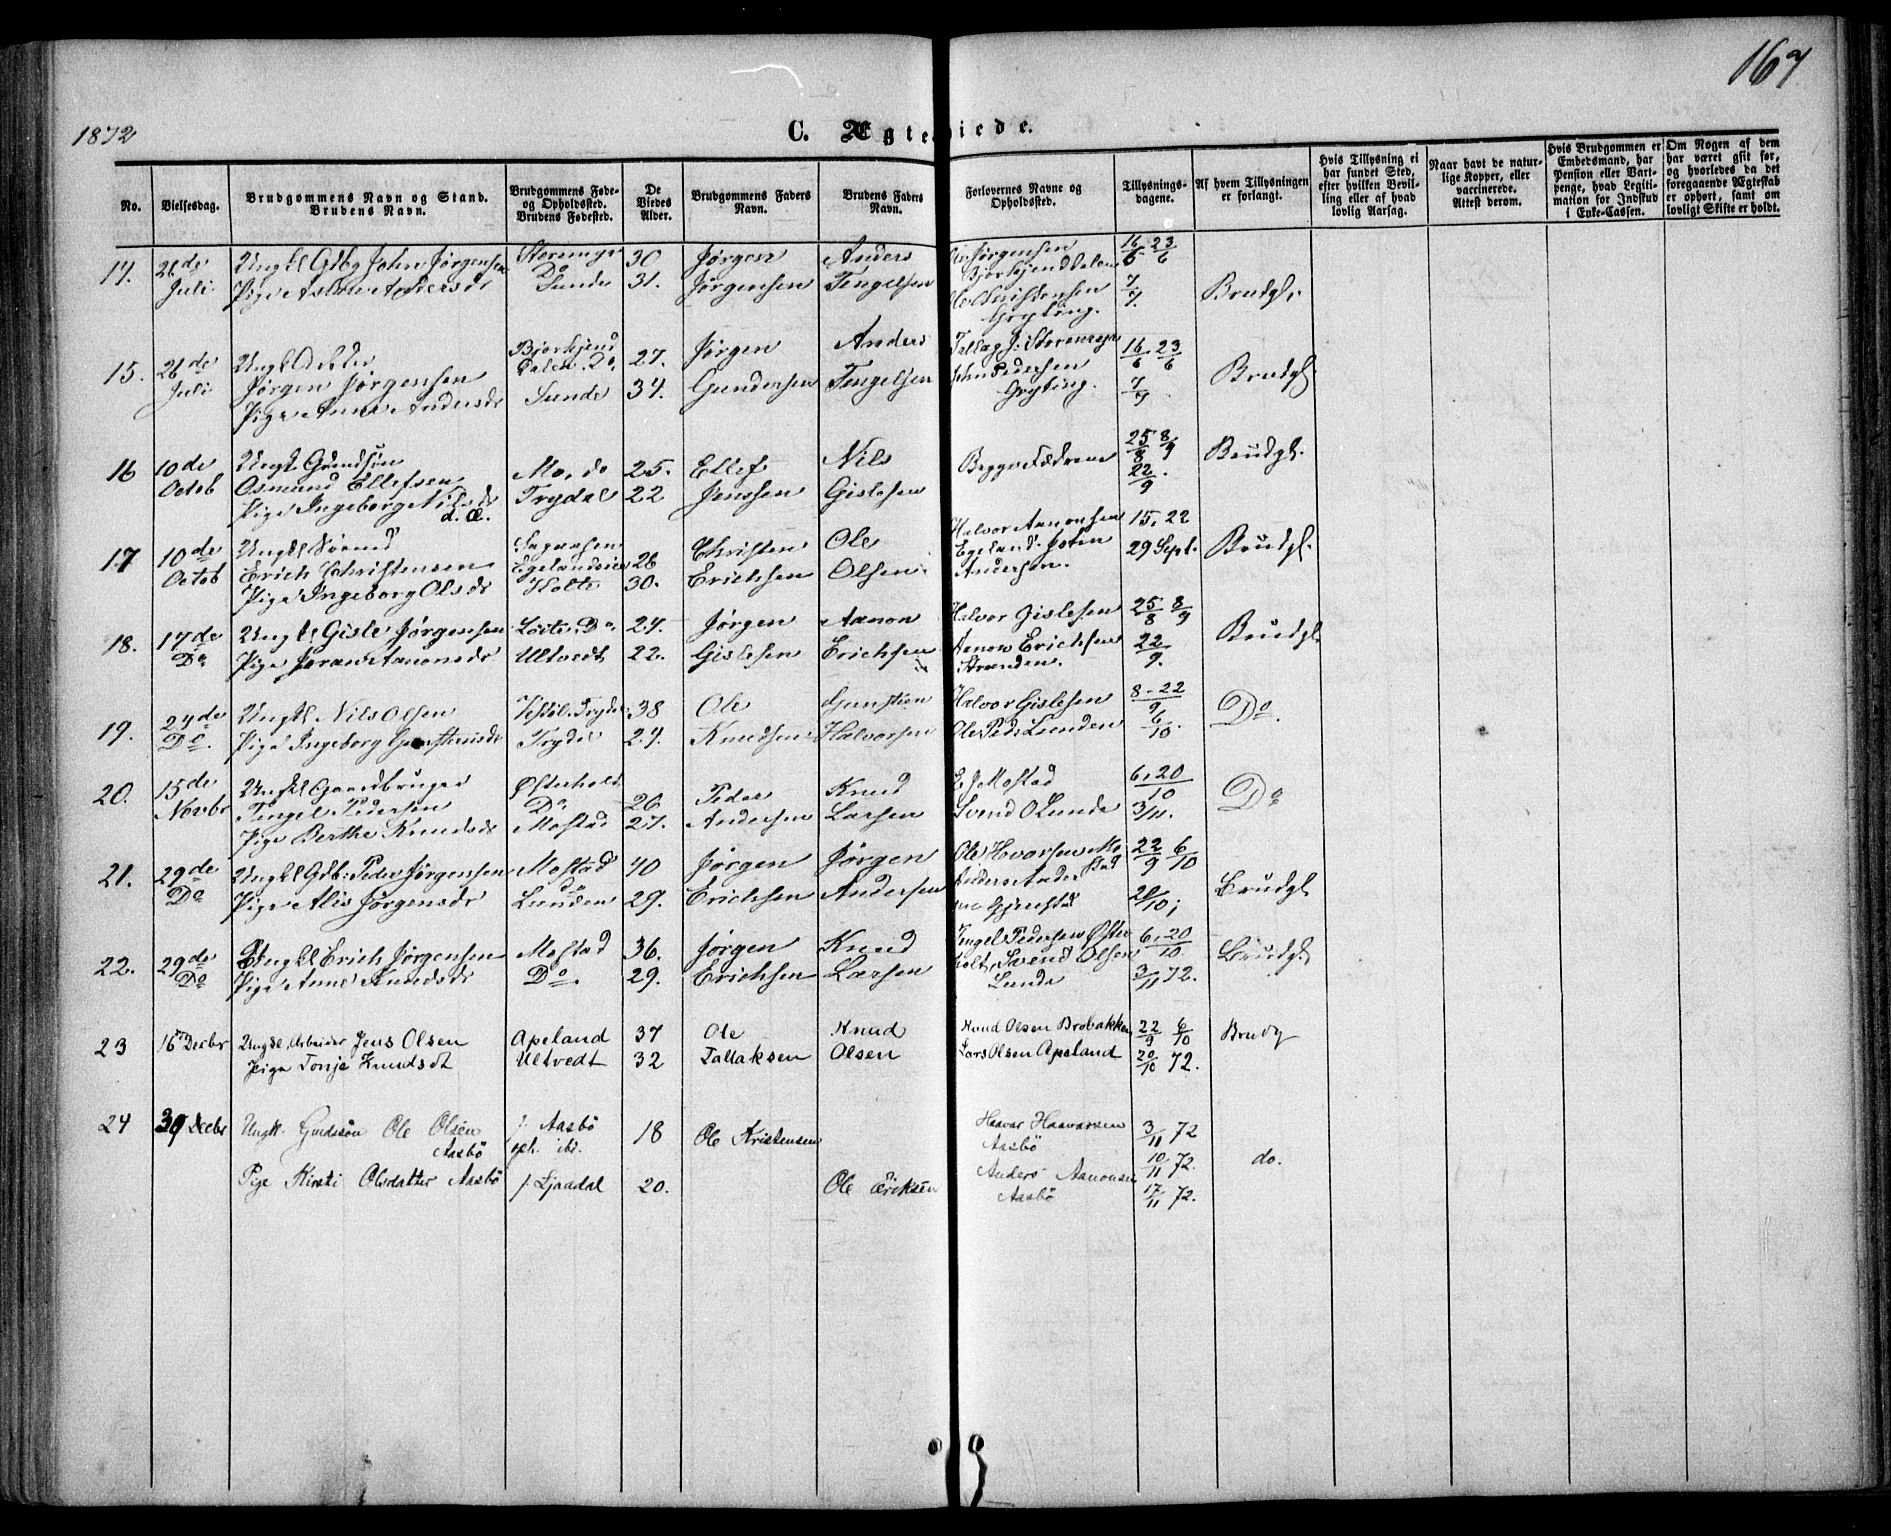 167
1872
C. Ægteviede.
No.
Vielsesdag.
Brudgommens Navn og Stand.
Brudens Navn.
Brudgommens Føde-
og Opholdssted.
Brudens Fødested.
De
Viedes
Alder.
Brudgommens Faders
Navn.
Brudens Faders
Navn.
Forlovernes Navne og
Opholdssted.
Tillysnings-
dagene.
Af hvem Tillysningen
er forlangt.
Hvis Tillysning ei
har fundet Sted,
efter hvilken Bevil-
ling eller af hvad
lovlig Aarsag.
Naar havt de natur-
lige Kopper, eller
vaccinerede.
Attest derom.
Hvis Brudgommen er
Embedsmand, har
Pension eller Vart-
penge, hvad Legiti-
mation for Indskud
i Enke-Cassen.
Om Nogen af dem
har været gift før,
og hvorledes da det
foregaaende Ægteskab
er ophørt, samt om
lovligt Skifte er holdt.
26de Ungkl Gdbg John Jørgensen Do 30 Jørgen Anders Jørgensen 16/6 23/6
Juli Pige Andersdr Sunde 31. Jørgensen Tengelsen Ole Christensen 7/7. Brudgl.
Gryting.
15. 26de Ungkl Bjorkjend Dalen Do 27. Jørgen Anders 16/6 23/6
Juli Jørgen Jørgensen Sunde 34. Gundersen Tengelsen John Pedersen Gryting. 7/7 Brudgl.
Pige Anne Andersdr
16 10de Octob Ungk Gaardsøn Mo, do 25. Ellef Nils Begge Fædrene 25/8 8/9 Brudgl.
Osmund Ellefsen Trydal 22 Jenssen Gislesen 22/9
Pige Ingeborg Nilsdr
d. Æ.
17 10de Octob Ungkl Christen Ole Halvor Aanonsen 15, 22
Erich Christensen 26 Erichsen Olsen Egeland. John 29 Sept. Brudgl.
Pige Ingeborg Olsdr Holte 30. Andersen.
18. 17de Do Ungkl Gisle Jørgensen Do 24. Jørgen Aanon Halvor Gislesen 25/8 8/9 Brudgl
Pige Aanonsdr Ultvedt 22. Gislesen Erichsen Aanon Erichsen Stranden. 22/9.
19. 24de Do. Ungkl Nils Olsen 38 Ole Gunstien Halvor Gislesen 8-22/9 Do.
Pige Ingeborg Gunstensdr 24. Knudsen Halvorsen Ole Peds Lunden 6/10.
20. 15de Novbr Ungkl Gaardbruger Østerholt Do 26 Peder Knud Mostad 6, 20/10 Do
Tengel Pedersen Mostad 27. Andersen Larsen Svend O Lunde 3/11.
Pige Berthe Knudsdr
21. 29de Do Ungkl Gdb: Peder Jørgensen Mostad do 40 Jørgen Jørgen 22/9 6/10
Pige Alis Jørgensdr Lunden 29. Erichsen Andersen 20/10; Brudgl
22. 29de Do Ungkl Erich Jørgensen Mostad 36. Jørgen Knud Tengel Pedersen Øster- 6, 20/10 Brudgl
Pige Anne Knudsdr Do. 29. Erichsen Larsen holt, Svend Olsen Lunde 3/11 72.
23 16 Decbr Ungkl. Arbeider Jens Olsen Apeland 37 Ole Knud Knud Olsen Brobakken 22/9 6/10 Brudg
Pige Tonje Knudsdt Ultvedt 32 Tallaksen Olsen Lars Olsen Apeland 20/10 72.
24 30 Decbr Ungk. Gmdssøn Ole Olsen Aasbø f. Aasbø oph. ibi. 18 Ole Kristensen Haavar Haavarsen 3/11 72
Aasbø 10/11 72. do.
Pige Kirsti Olsdatter Aasbø f. Ljaadal 20. Ole Eriksen Anders Aanonsen Aasbø 17/11 72.